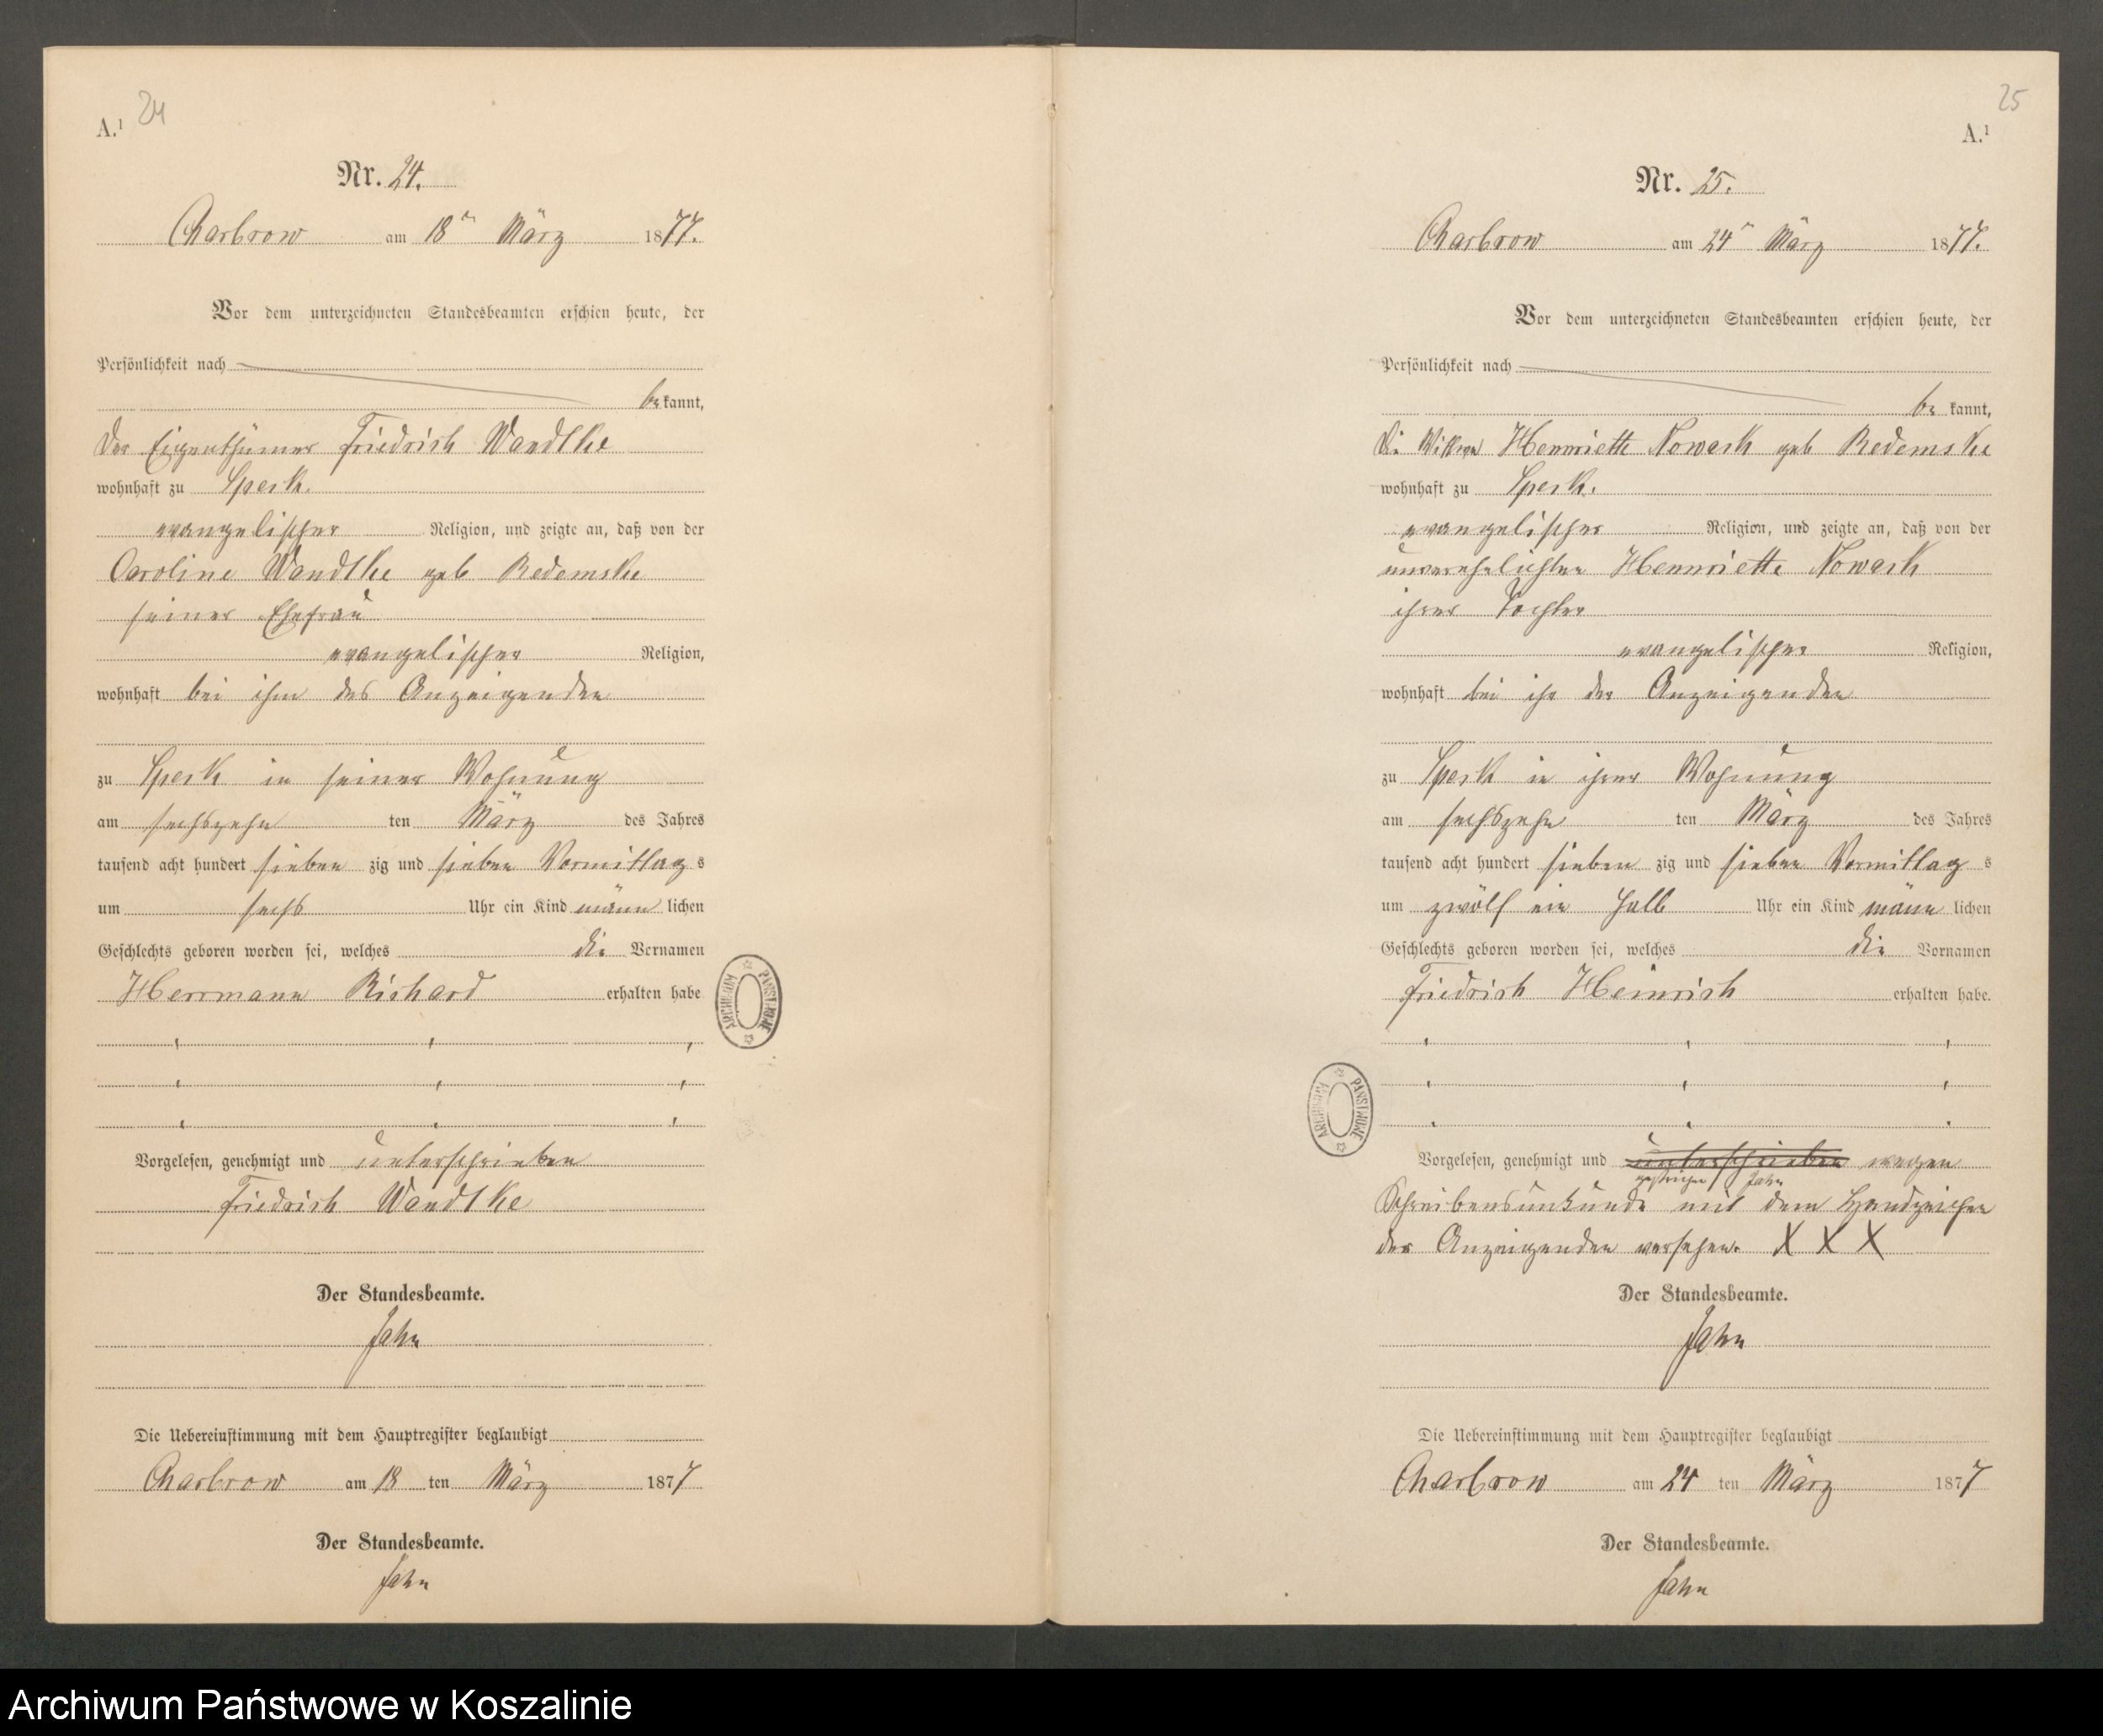 24
A.¹
Nr. 24.
Charbrow am 18ⁿ März 1877.
Vor dem unterzeichneten Standesbeamten erschien heute, der
Persönlichkeit nach
be kannt,
Der Eigenthümer Friedrich Wandtke
wohnhaft zu Speck.
evangelischer Religion, und zeigte an, daß von der
Caroline Wandtke geb Redemske
seiner Ehefrau
evangelischer Religion,
wohnhaft bei ihm des Anzeigenden
zu Speck in seiner Wohnung
am sechszehn ten März des Jahres
tausend acht hundert sieben zig und sieben Vormittag s
um sechs Uhr ein Kind männ lichen
Geschlechts geboren worden sei, welches die Vornamen
Herrmann Richard erhalten habe
Vorgelesen, genehmigt und unterschrieben
Friedrich Wandtke
Der Standesbeamte.
Jahn
Die Uebereinstimmung mit dem Hauptregister beglaubigt
Charbrow am 18 ten März 1877
Der Standesbeamte.
Jahn
ARCHIWUM PAŃSTWOWE
25
A.¹
Nr. 25.
Charbrow am 24ⁿ März 1877.
Vor dem unterzeichneten Standesbeamten erschien heute, der
Persönlichkeit nach
be kannt,
Die Wittwe Hennriette Nowack geb Redemske
wohnhaft zu Speck.
evangelischer Religion, und zeigte an, daß von der
unverehelichten Hennriette Nowack
ihrer Tochter
evangelischer Religion,
wohnhaft bei ihr der Anzeigenden
zu Speck in ihrer Wohnung
am sechszehn ten März des Jahres
tausend acht hundert sieben zig und sieben Vormittag s
um zwölf ein halb Uhr ein Kind männ lichen
Geschlechts geboren worden sei, welches die Vornamen
Friedrich Heinrich erhalten habe.
Vorgelesen, genehmigt und unterschrieben wegen
gestrichen Jahn
Schreibensunkunde mit dem Handzeichen
der Anzeigenden versehen. X X X
Der Standesbeamte.
Jahn
Die Uebereinstimmung mit dem Hauptregister beglaubigt
Charbrow am 24 ten März 1877
Der Standesbeamte.
Jahn
ARCHIWUM PAŃSTWOWE
Archiwum Państwowe w Koszalinie